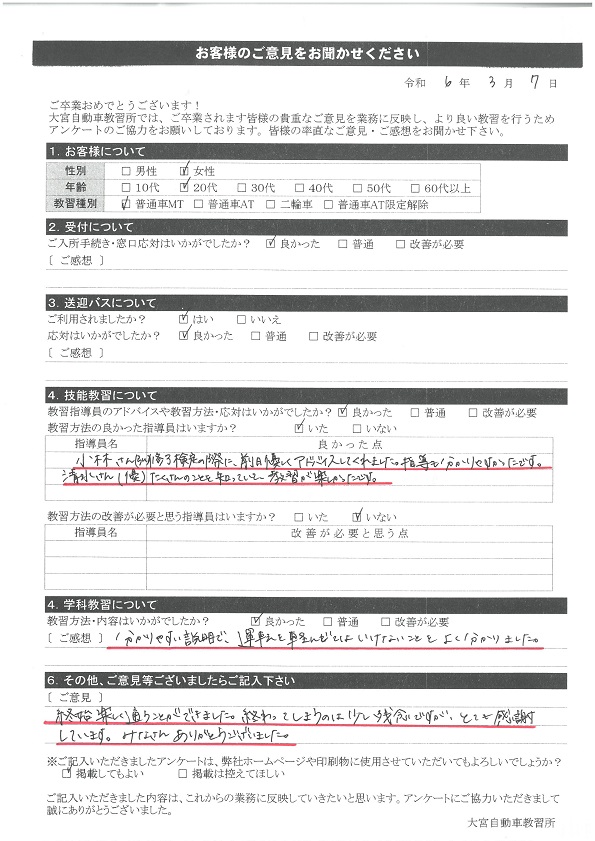 お客様のご意見をお聞かせください
令和 6 年 3 月 7 日
ご卒業おめでとうございます！
大宮自動車教習所では、ご卒業されます皆様の貴重なご意見を業務に反映し、より良い教習を行うため
アンケートのご協力をお願いしております。皆様の率直なご意見・ご感想をお聞かせ下さい。
1. お客様について
性別 □ 男性 ☑ 女性
年齢 □ 10代 ☑ 20代 □ 30代 □ 40代 □ 50代 □ 60代以上
教習種別 ☑ 普通車MT □ 普通車AT □ 二輪車 □ 普通車AT限定解除
2. 受付について
ご入所手続き・窓口応対はいかがでしたか？ ☑ 良かった □ 普通 □ 改善が必要
［ ご感想 ］
3. 送迎バスについて
ご利用されましたか？ ☑ はい □ いいえ
応対はいかがでしたか？ ☑ 良かった □ 普通 □ 改善が必要
［ ご感想 ］
4. 技能教習について
教習指導員のアドバイスや教習方法・応対はいかがでしたか？ ☑ 良かった □ 普通 □ 改善が必要
教習方法の良かった指導員はいますか？ ☑ いた □ いない
指導員名 良かった点
小林さん 修了検定の際に、前日優しくアドバイスしてくれました。指導も分かりやすかったです。
清水さん(優) たくさんのことを知っていて、教習が楽しかったです。
教習方法の改善が必要と思う指導員はいますか？ □ いた ☑ いない
指導員名 改善が必要と思う点
4. 学科教習について
教習方法・内容はいかがでしたか？ ☑ 良かった □ 普通 □ 改善が必要
［ ご感想 ］ 分かりやすい説明で、運転を軽んじてはいけないことをよく分かりました。
6. その他、ご意見等ございましたらご記入下さい
［ ご意見 ］
終始楽しく通うことができました。終わってしまうのは少し残念ですが、とても感謝
しています。みなさんありがとうございました。
※ご記入いただきましたアンケートは、弊社ホームページや印刷物に使用させていただいてもよろしいでしょうか？
☑ 掲載してもよい □ 掲載は控えてほしい
ご記入いただきました内容は、これからの業務に反映していきたいと思います。アンケートにご協力いただきまして
誠にありがとうございました。
大宮自動車教習所